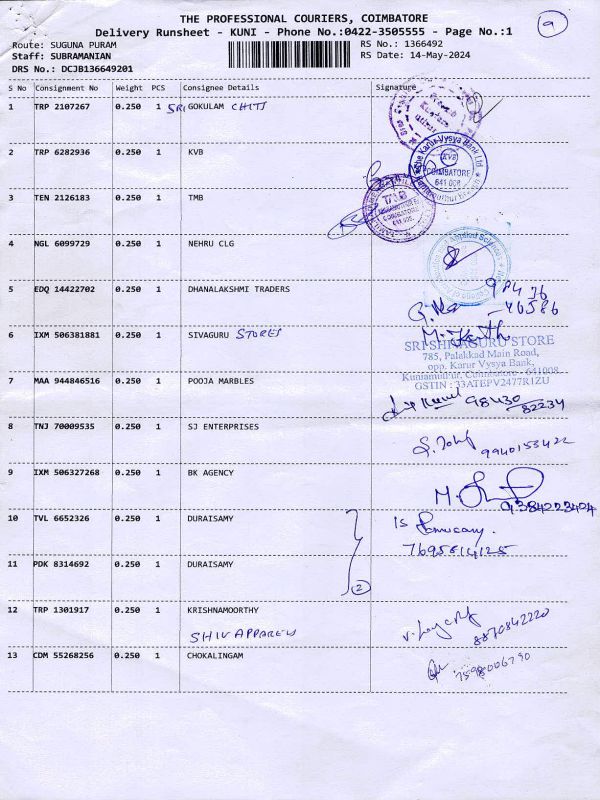 THE PROFESSIONAL COURIERS, COIMBATORE
Delivery Runsheet - KUNI - Phone No.:0422-3505555 - Page No.:1
9
Route: SUGUNA PURAM
RS No.: 1366492
Staff: SUBRAMANIAN
RS Date: 14-May-2024
DRS No.: DCJB136649201
S No Consignment No Weight PCS Consignee Details Signature
1 TRP 2107267 0.250 1 SRI GOKULAM CHITS
2 TRP 6282936 0.250 1 KVB
Karur Vysya Bank Ltd
KVB
COIMBATORE
641 008
3 TEN 2126183 0.250 1 TMB
TMB
4 NGL 6099729 0.250 1 NEHRU CLG
5 EDQ 14422702 0.250 1 DHANALAKSHMI TRADERS
6 IXM 506381881 0.250 1 SIVAGURU STORES
SRI SHIVAGURU STORE
785, Palakkad Main Road,
opp. Karur Vysya Bank,
Kuniamuthur, Coimbatore - 641008
GSTIN : 33ATEPV2477R1ZU
7 MAA 944846516 0.250 1 POOJA MARBLES
98430
82234
8 TNJ 70009535 0.250 1 SJ ENTERPRISES
9940153422
9 IXM 506327268 0.250 1 BK AGENCY
9384223404
10 TVL 6652326 0.250 1 DURAISAMY
7695614125
11 PDK 8314692 0.250 1 DURAISAMY
2
12 TRP 1301917 0.250 1 KRISHNAMOORTHY
SHIV APPARELS
8870842220
13 CDM 55268256 0.250 1 CHOKALINGAM
7598006790